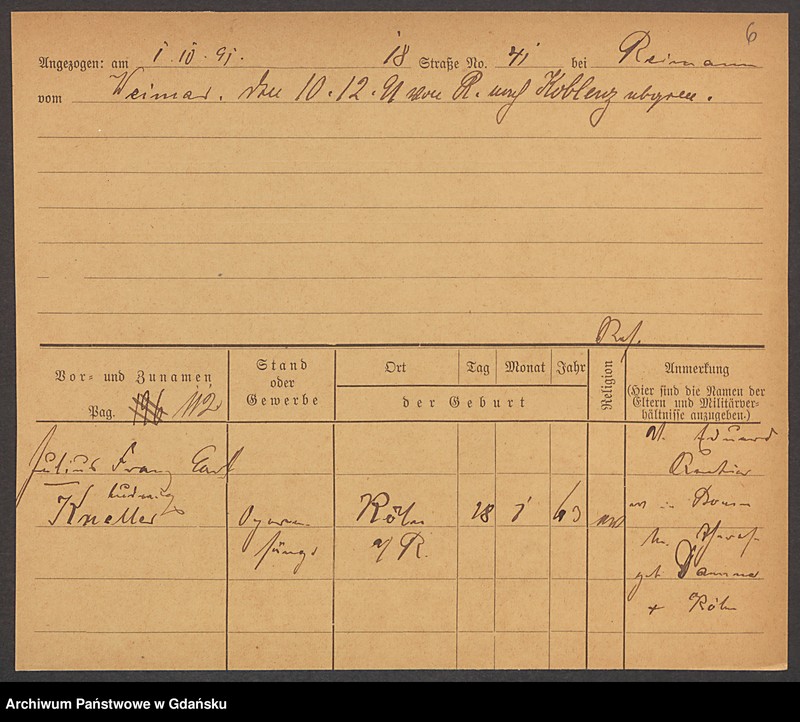 6
Angezogen: am 1.10.91. 18 Straße No. 41 bei Reimann
vom Weimar. den 10.12.91 von R. nach Koblenz abgem.
Ref.
Vor- und Zunamen
Pag. 112
Stand
oder
Gewerbe
Ort Tag Monat Jahr
der Geburt
Religion
Anmerkung
(Hier sind die Namen der
Eltern und Militärver-
hältnisse anzugeben.)
Julius Franz Carl
Ludwig
Kneller
Opern-
sänger
Köln
a/R.
18 1 63
ev
V. Eduard
Rentier
in Bonn
M.
geb.
+ Köln
Archiwum Państwowe w Gdańsku